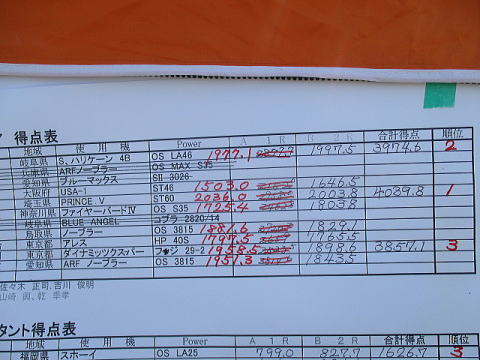 得点表
地域 使用機 Power A 1R B 2R 合計得点 順位
岐阜県 S、ハリケーン 4B OS LA46 1977.1 1997.5 3974.6 2
兵庫県 ARFノーブラー OS MAX S35
愛知県 ブルーマックス SII 3026
大阪府 USA-1 ST46 1503.0 1646.5
埼玉県 PRINCE V ST60 2036.0 2003.8 4039.8 1
神奈川県 ファイヤーバードⅣ OS S35 1725.4 1803.8
岐阜県 BLUE ANGEL コブラ 2820/14
鳥取県 ノーブラー OS 3815 1881.6 1829.1
東京都 アレス HP 40S 1797.5 1765.5
東京都 ダイナミックスバー フッジ 29-2 1958.5 1898.6 3857.1 3
愛知県 ARF ノーブラー OS 3815 1951.3 1843.5
佐々木 正司、吉川 俊明
山崎
タント得点表
地域 使用機 Power A 1R B 2R 合計得点 順位
福岡県 スホーイ OS LA25 799.0 827.7 1626.7 3